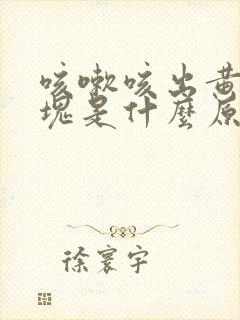 咳嗽咳出黄
块是什麼原
徐寰宇